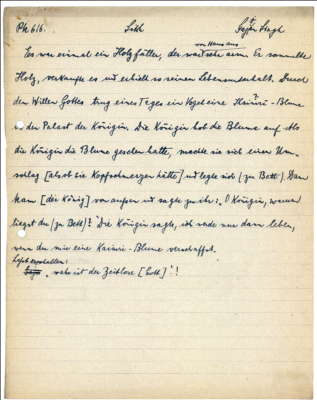 PK 616. Sikh Sajjan Singh
von Haus aus
Es war einmal ein Holzfäller, der war sehr arm. Er sammelte
Holz, verkaufte es und erhielt so seinen Lebensunterhalt. Durch
den Willen Gottes trug eines Tages ein Vogel eine Kaimri-Blume
in den Palast der Königin. Die Königin hob die Blume auf. Als
die Königin die Blume gesehen hatte, machte sie sich einen Um-
schlag [als ob sie Kopfschmerzen hätte] und legte sich (zu Bett). Dann
kam [der König] von aussen und sagte zu ihr: O Königin, warum
liegst du (zu Bett)? Die Königin sagte, ich werde nur dann leben,
wenn du mir eine Kaimri-Blume verschaffst.
Lasst erschallen:
wahr ist der Zeitlose [Gott]!!